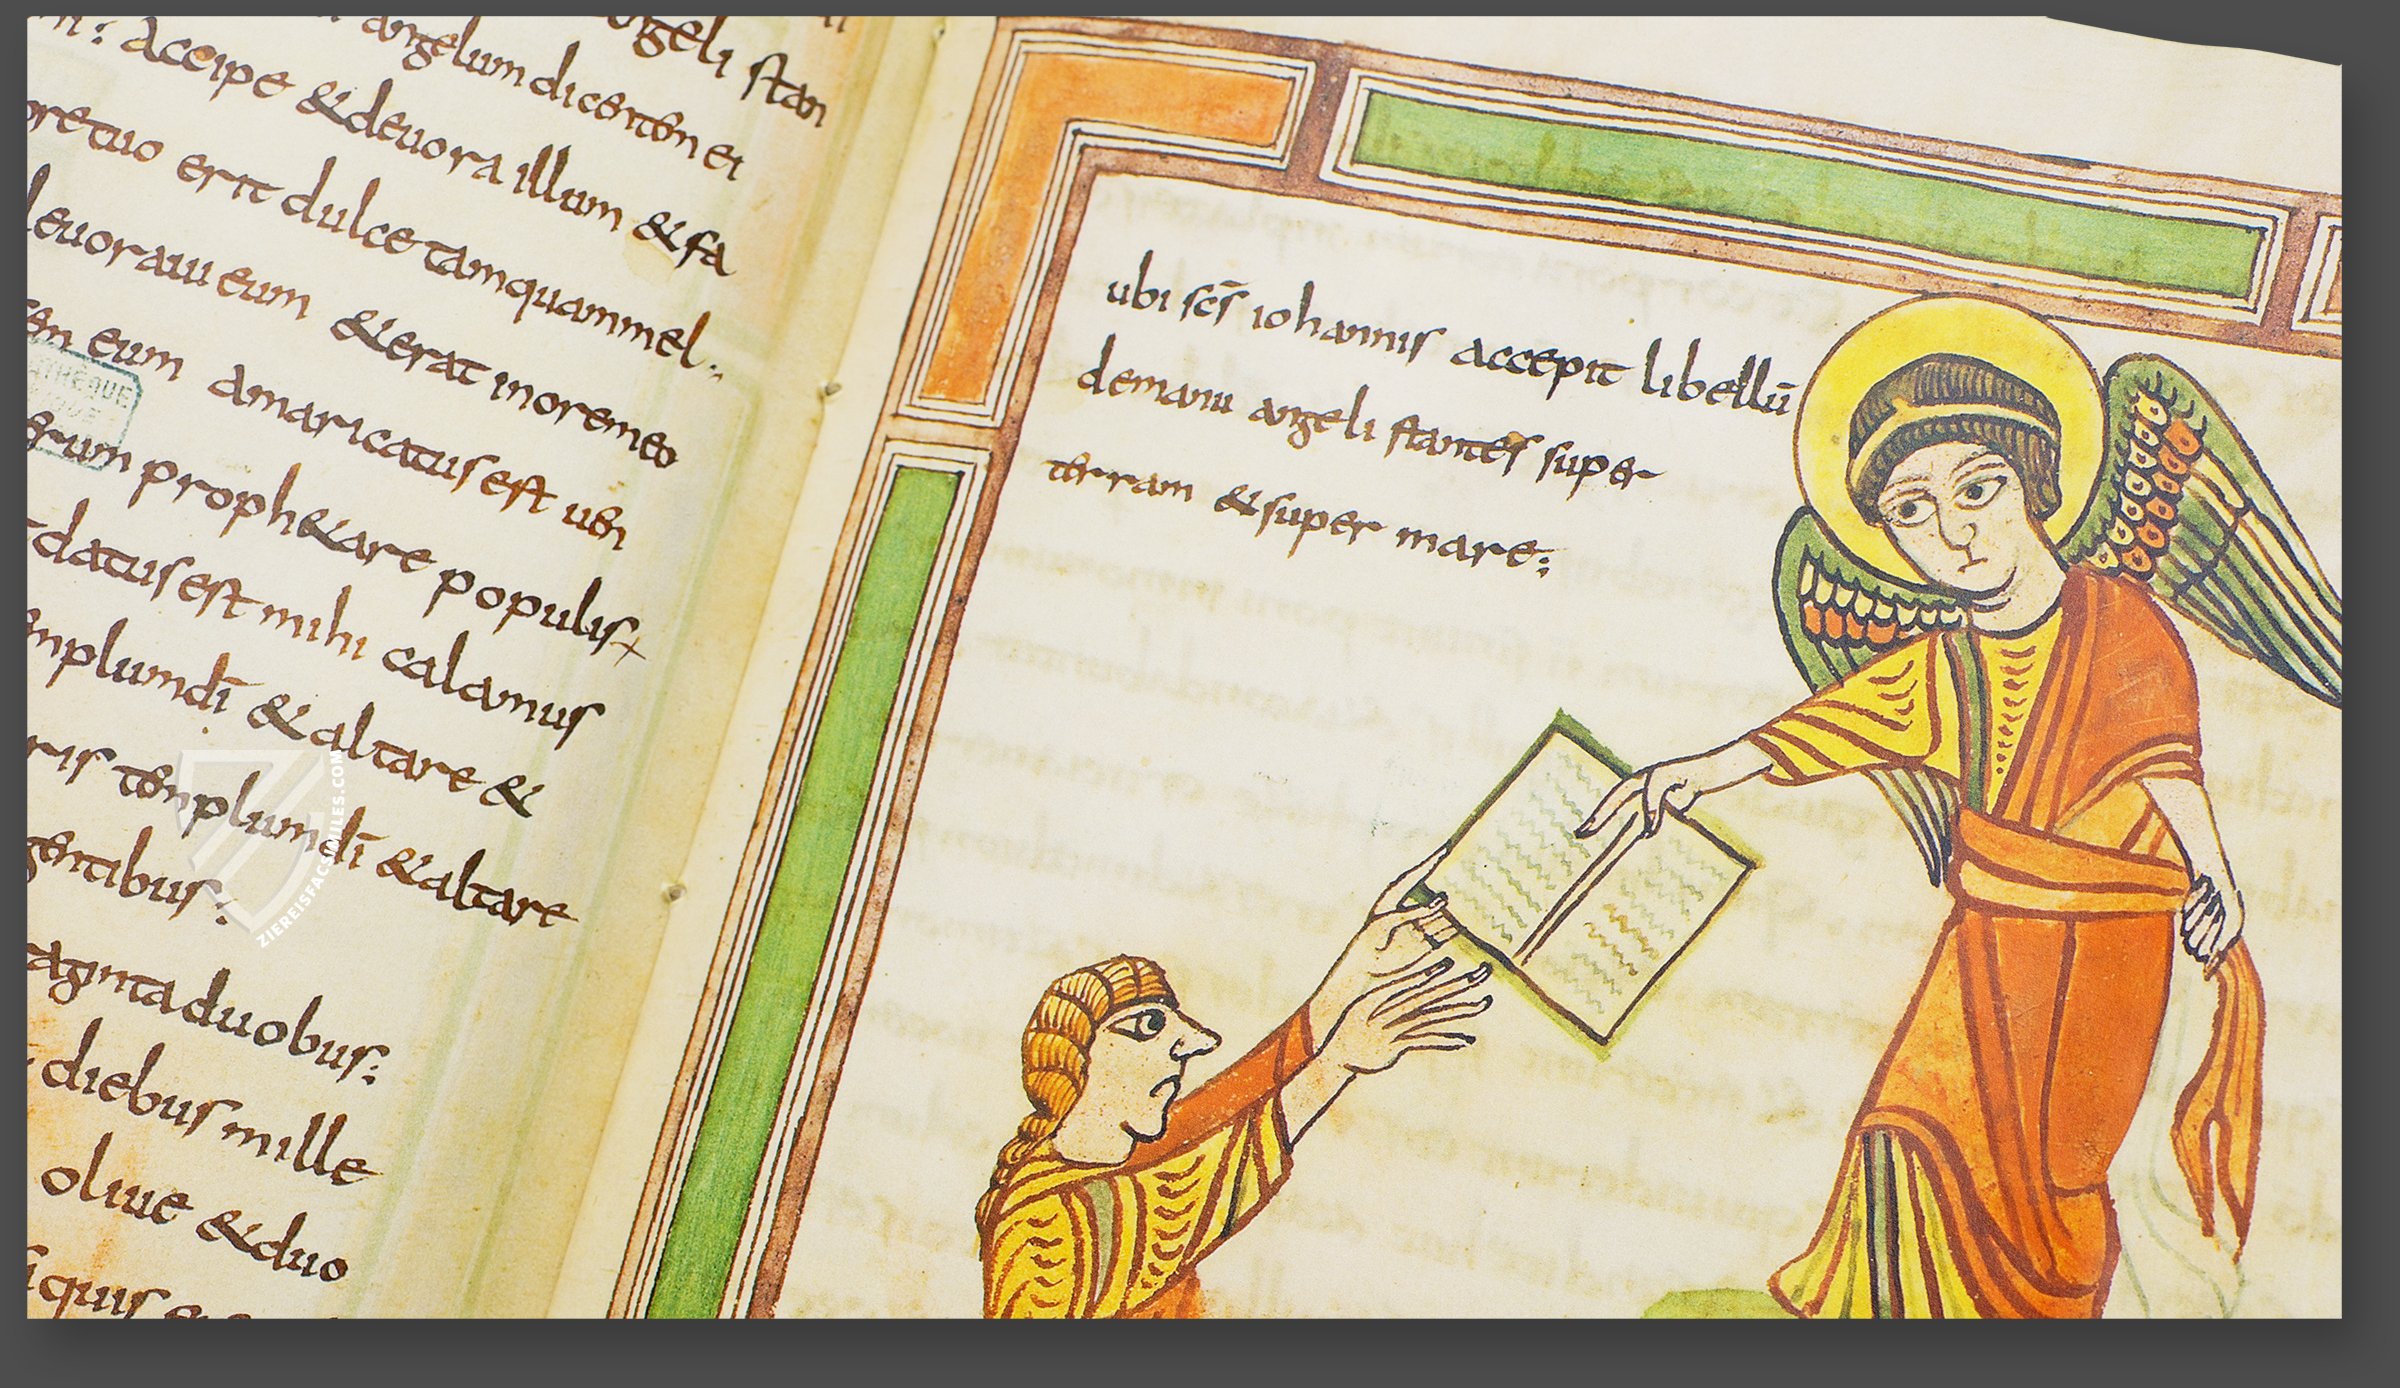 angeli stan
angelum dicentem ei
Accipe & deuora illum & fa
ore tuo erit dulce tamquam mel
deuoraui eum & erat in ore meo
eum amaricatus est uen
prophetare populis
datus est mihi calamus
templum dī & altare &
templum dī & altare
gentibus
duobus
diebus mille
oliue & duo
quis
ubi scs̄ iohannis accepit libellū
de manu angeli stantes super
terram & super mare
THEQUE
ZIEREISFACSIMILES.COM